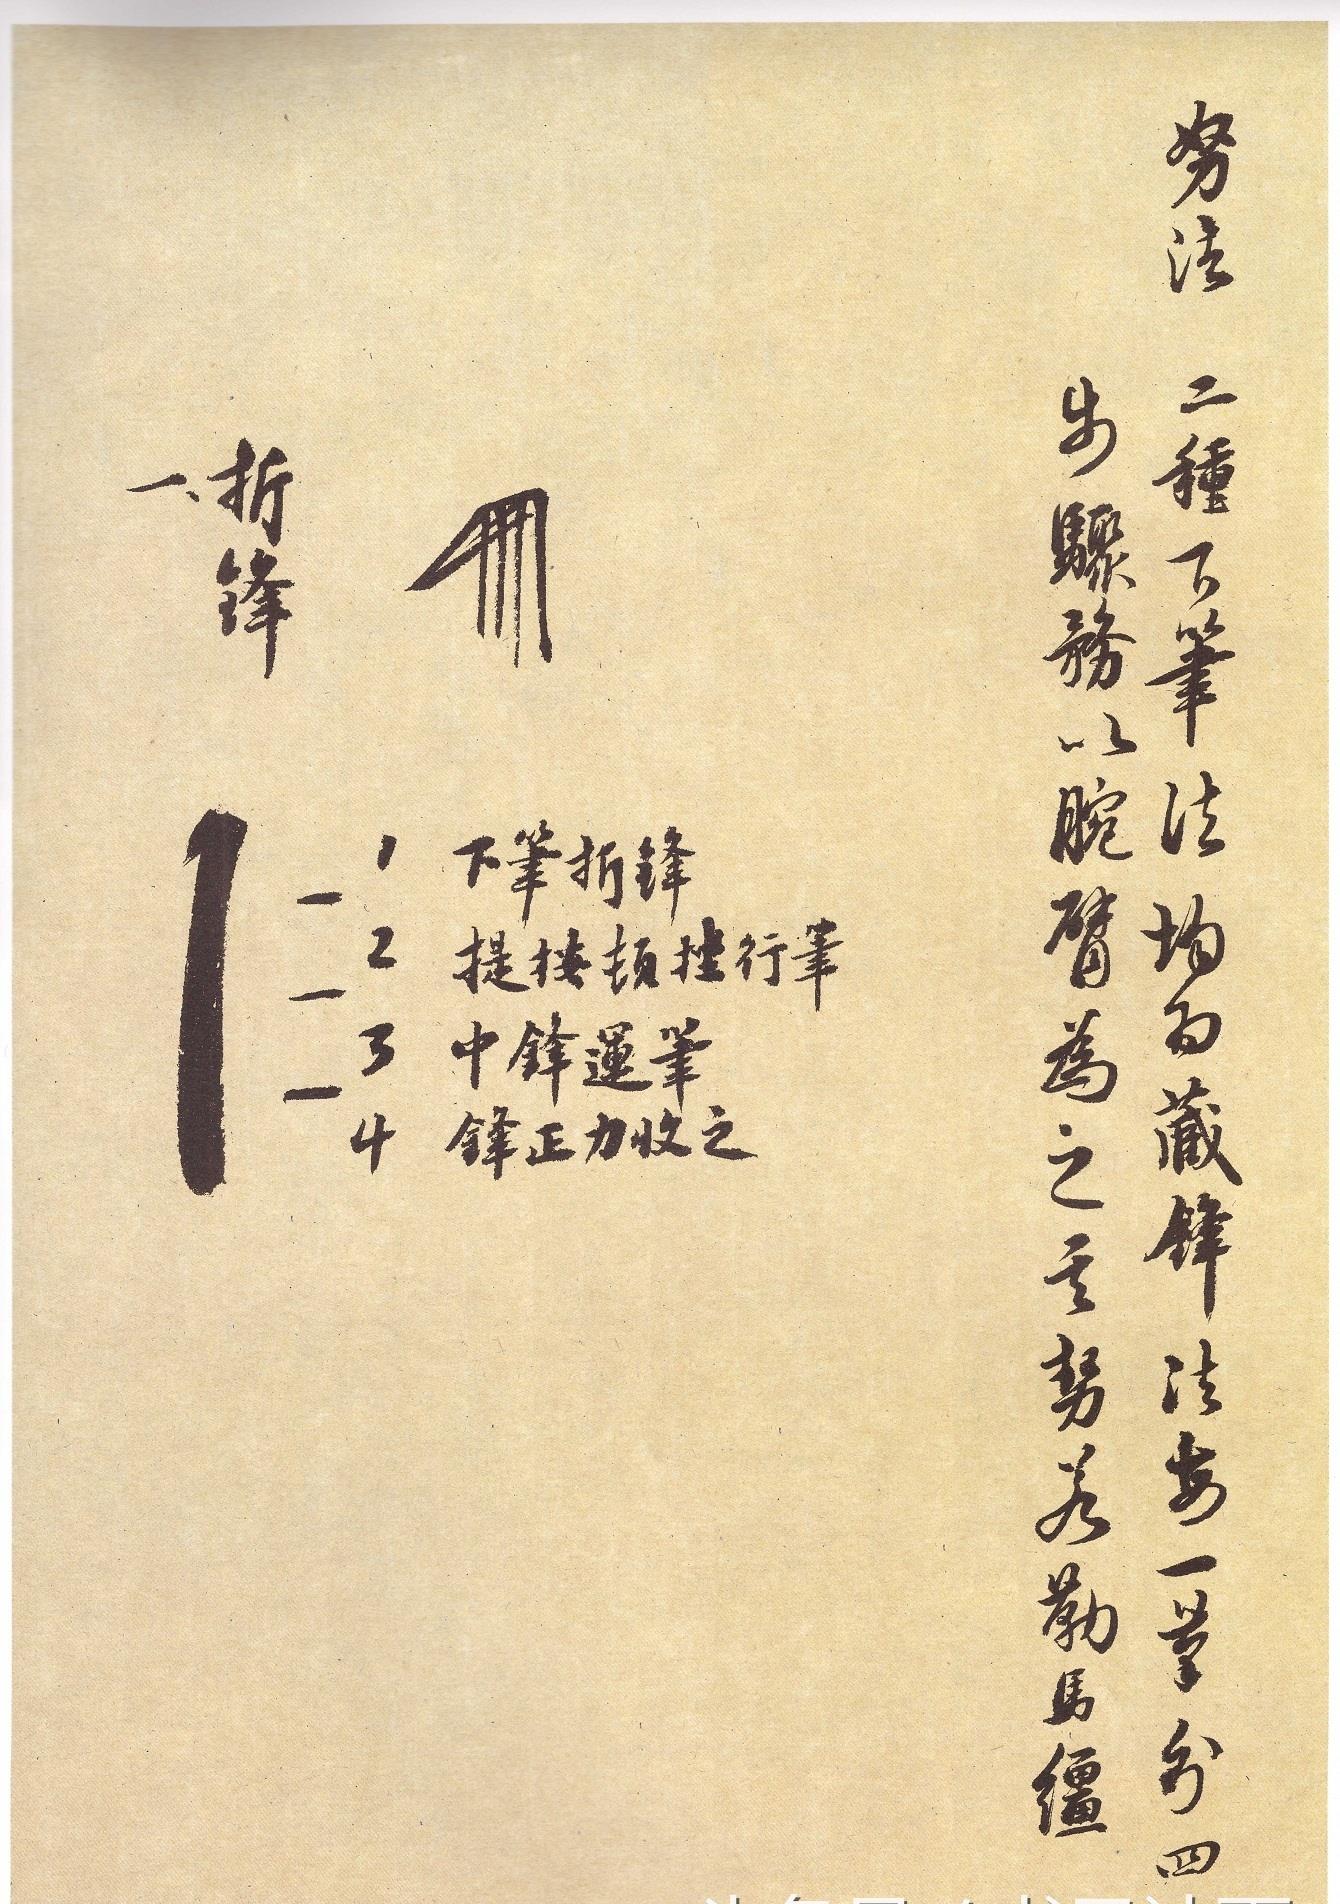 努法 二種下筆法均為藏鋒法每一筆分四
步驟務以腕臂為之其勢若勒馬韁
一、折鋒
1 下筆折鋒
2 提按頓挫行筆
3 中鋒運筆
4 鋒正力收之